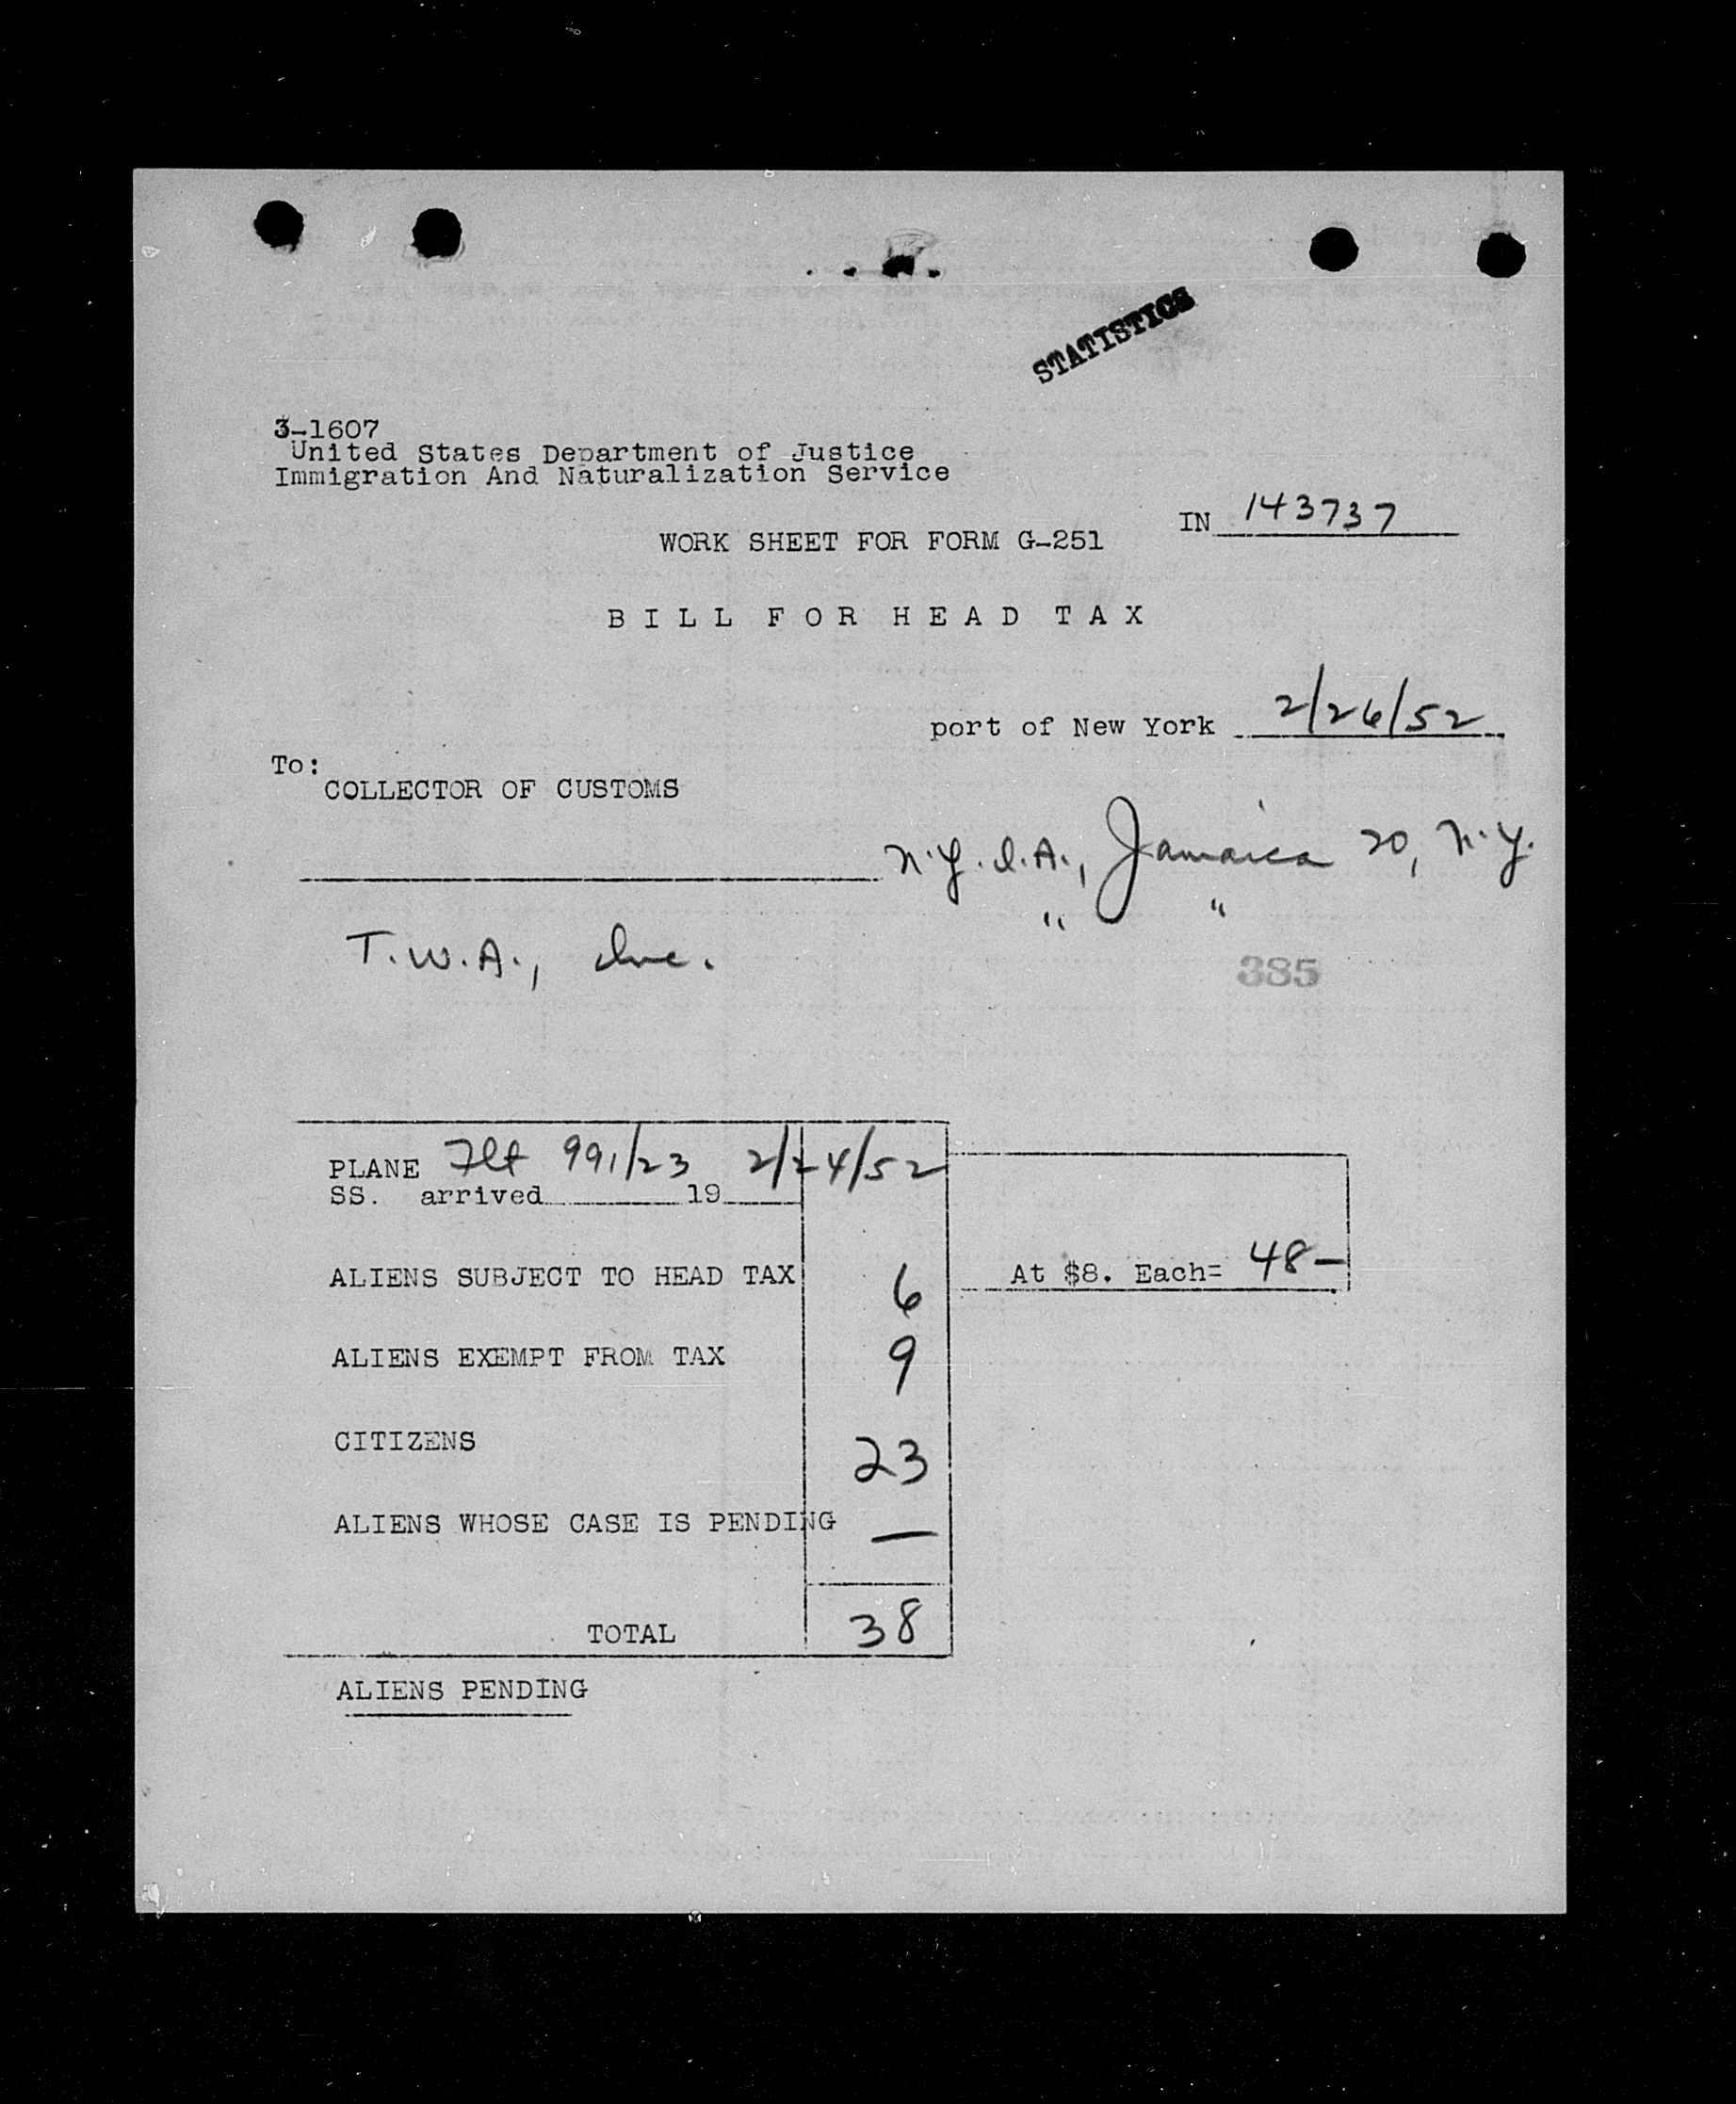 STATISTICS
3-1607
United States Department of Justice
Immigration And Naturalization Service
IN 143737
WORK SHEET FOR FORM G-251
BILL FOR HEAD TAX
port of New York 2/26/52
To:
COLLECTOR OF CUSTOMS
N.Y.I.A., Jamaica 20, N.Y.
" "
T.W.A., Inc.
385
PLANE Flt 991/23 2/24/52
SS. arrived 19
ALIENS SUBJECT TO HEAD TAX 6 At $8. Each= 48—
ALIENS EXEMPT FROM TAX 9
CITIZENS 23
ALIENS WHOSE CASE IS PENDING —
TOTAL 38
ALIENS PENDING